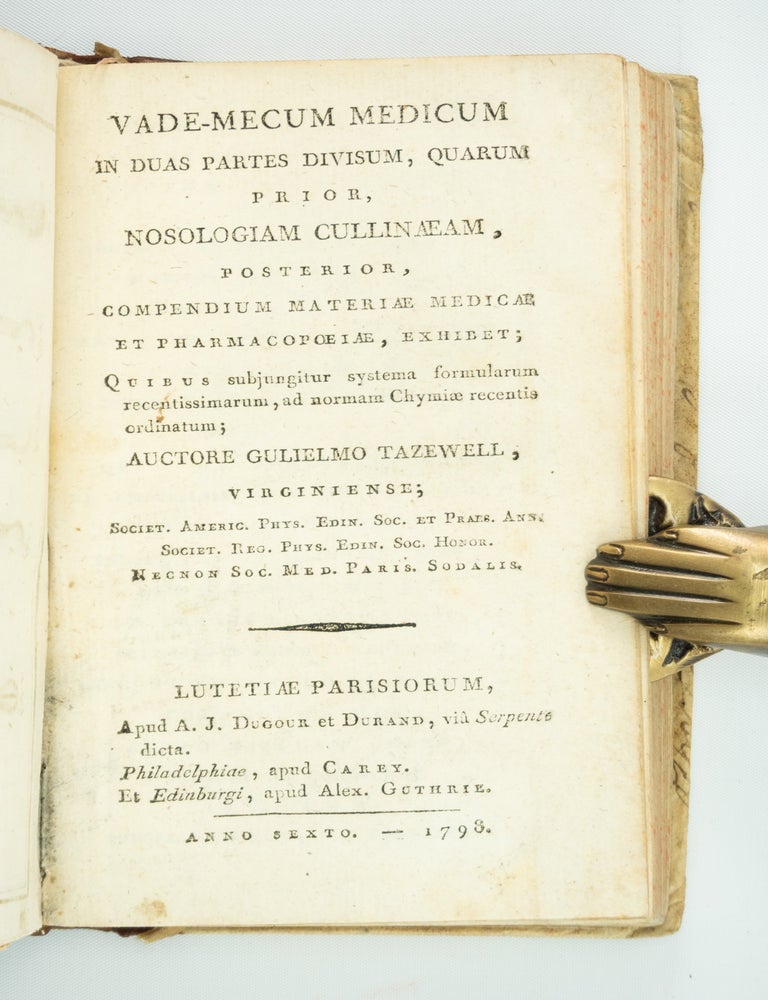 VADE-MECUM MEDICUM
IN DUAS PARTES DIVISUM, QUARUM
PRIOR,
NOSOLOGIAM CULLINÆAM,
POSTERIOR,
COMPENDIUM MATERIÆ MEDICÆ
ET PHARMACOPŒIÆ, EXHIBET;
QUIBUS subjungitur systema formularum
recentissimarum, ad normam Chymiæ recentis
ordinatum;
AUCTORE GULIELMO TAZEWELL,
VIRGINIENSE;
SOCIET. AMERIC. PHYS. EDIN. SOC. ET PRAES. ANN.
SOCIET. REG. PHYS. EDIN. SOC. HONOR.
NECNON SOC. MED. PARIS. SODALIS.
LUTETIÆ PARISIORUM,
Apud A. J. DUGOUR et DURAND, viâ Serpente
dicta.
Philadelphiae, apud CAREY.
Et Edinburgi, apud Alex. GUTHRIE.
ANNO SEXTO. — 1798.